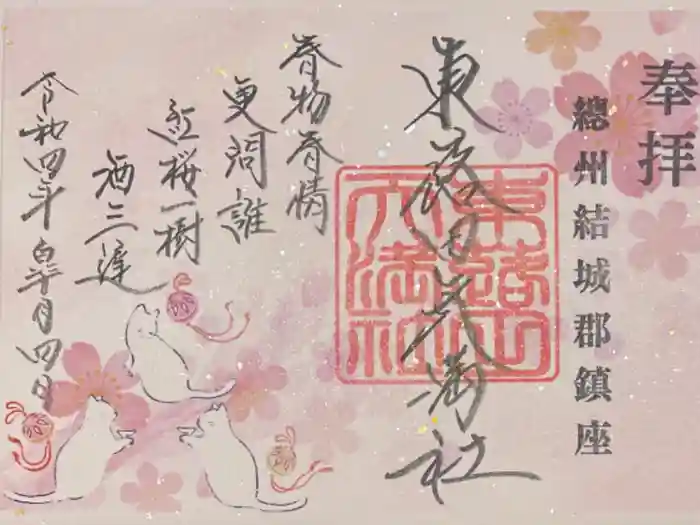 奉拝
總州結城郡鎮座
東蕗田天満社
春物春情
更問誰
紅桜一樹
酒三遅
令和四年
月四日